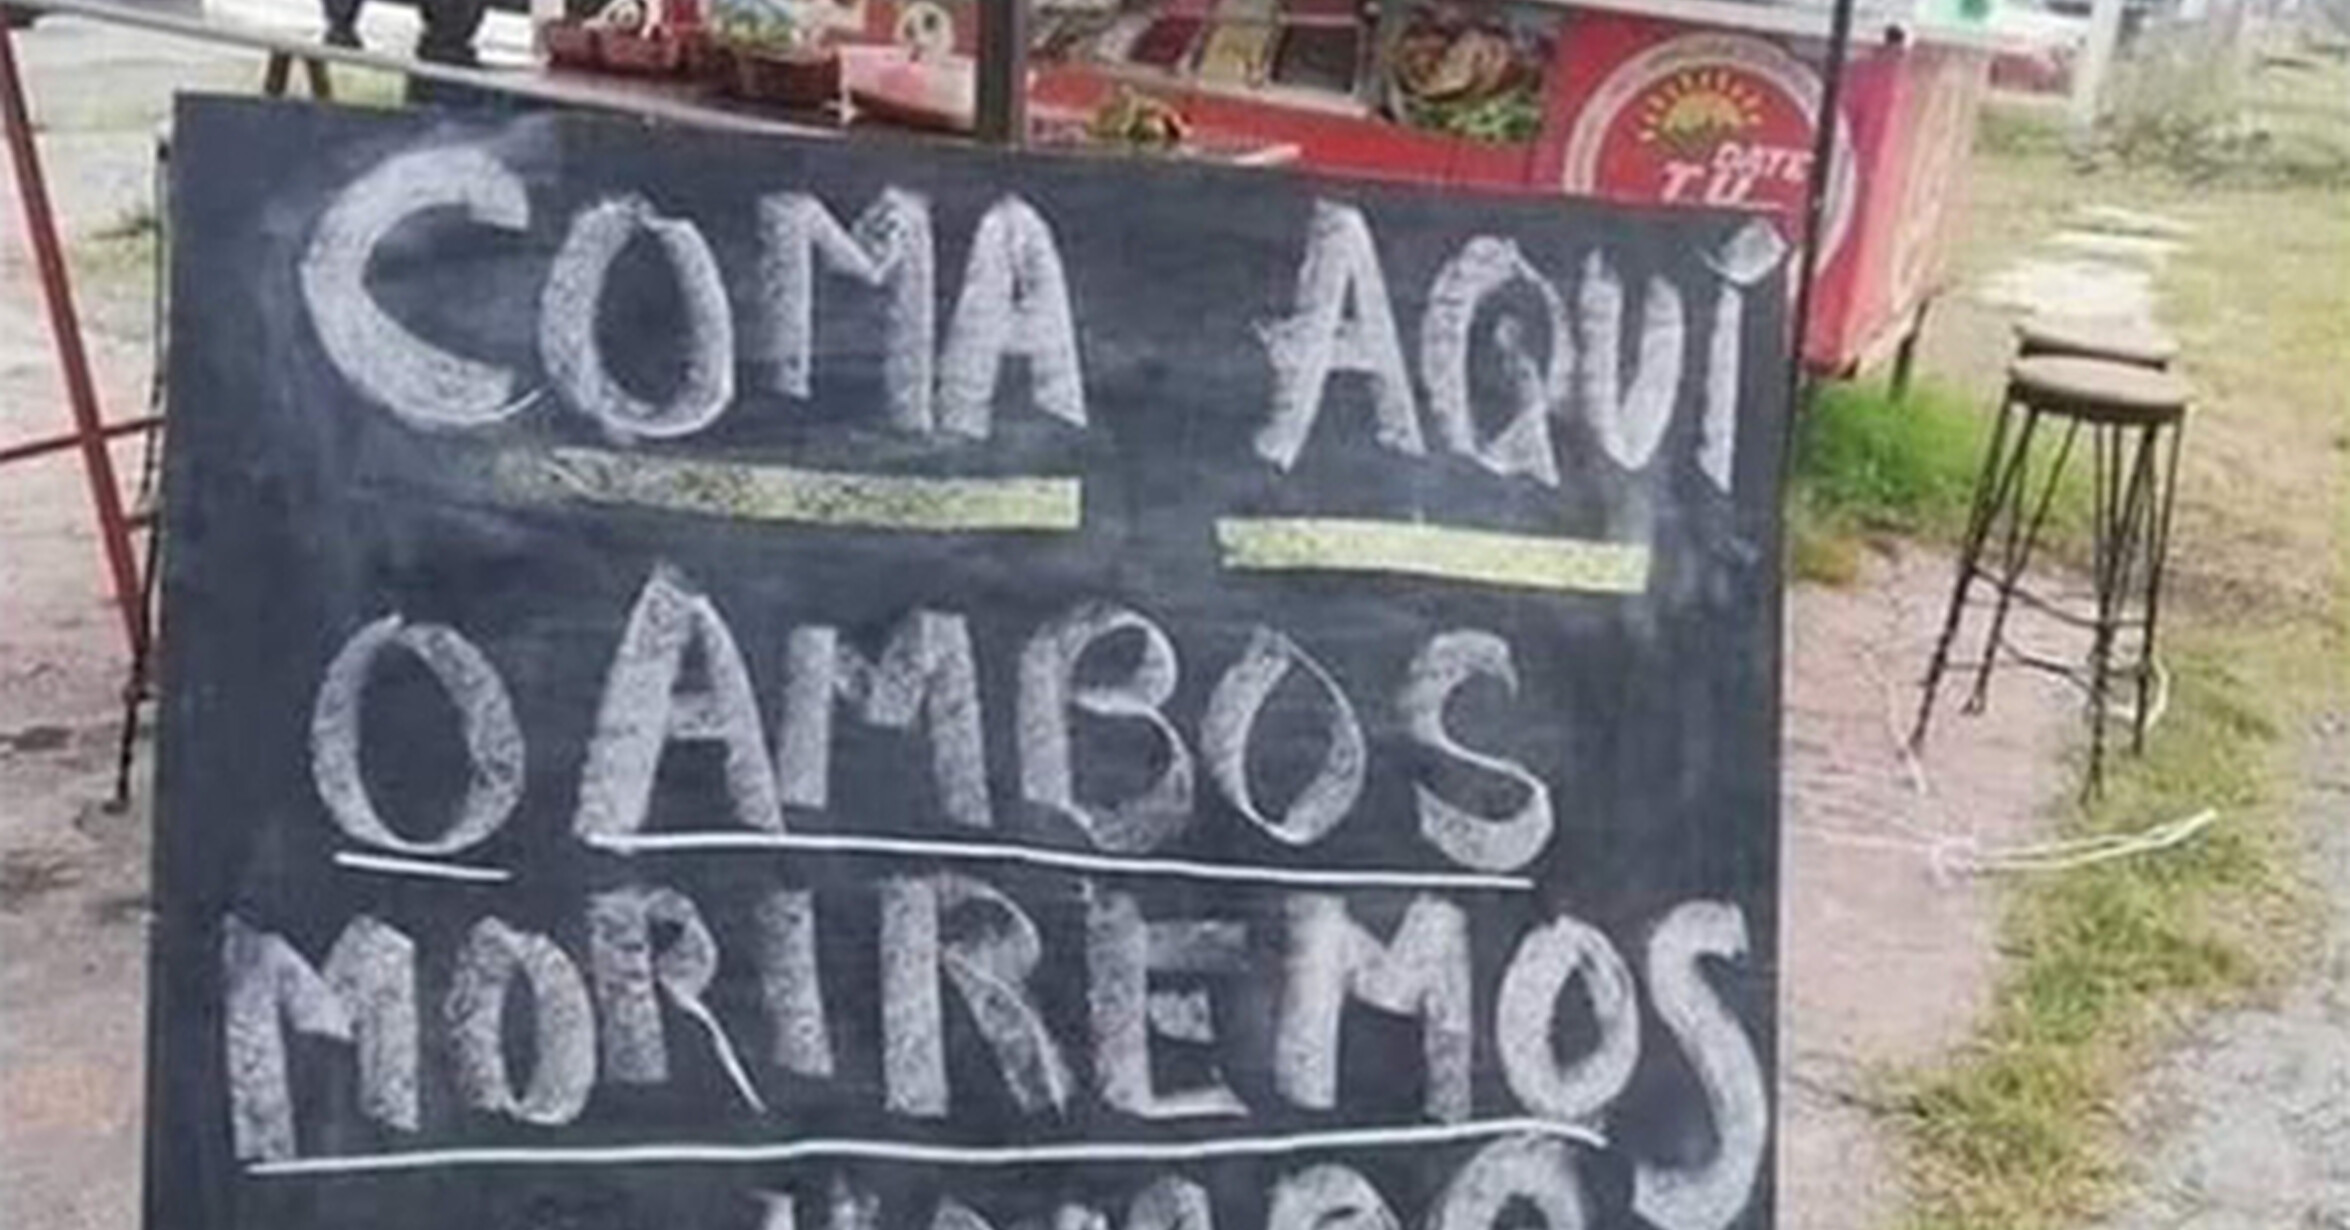 DATE
TU
COMA AQUÍ
O AMBOS
MORIREMOS